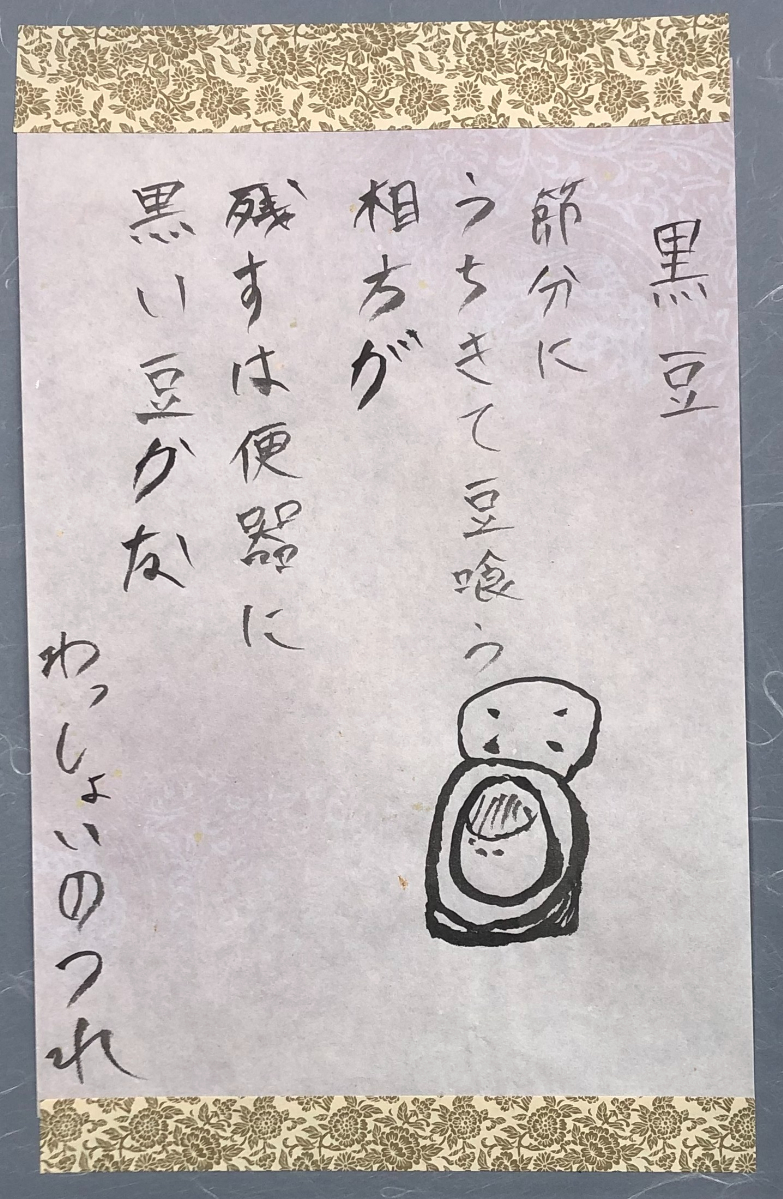 黒豆
節分に
うちきて豆喰う
相方が
残すは便器に
黒い豆かな
わっしょいのつれ